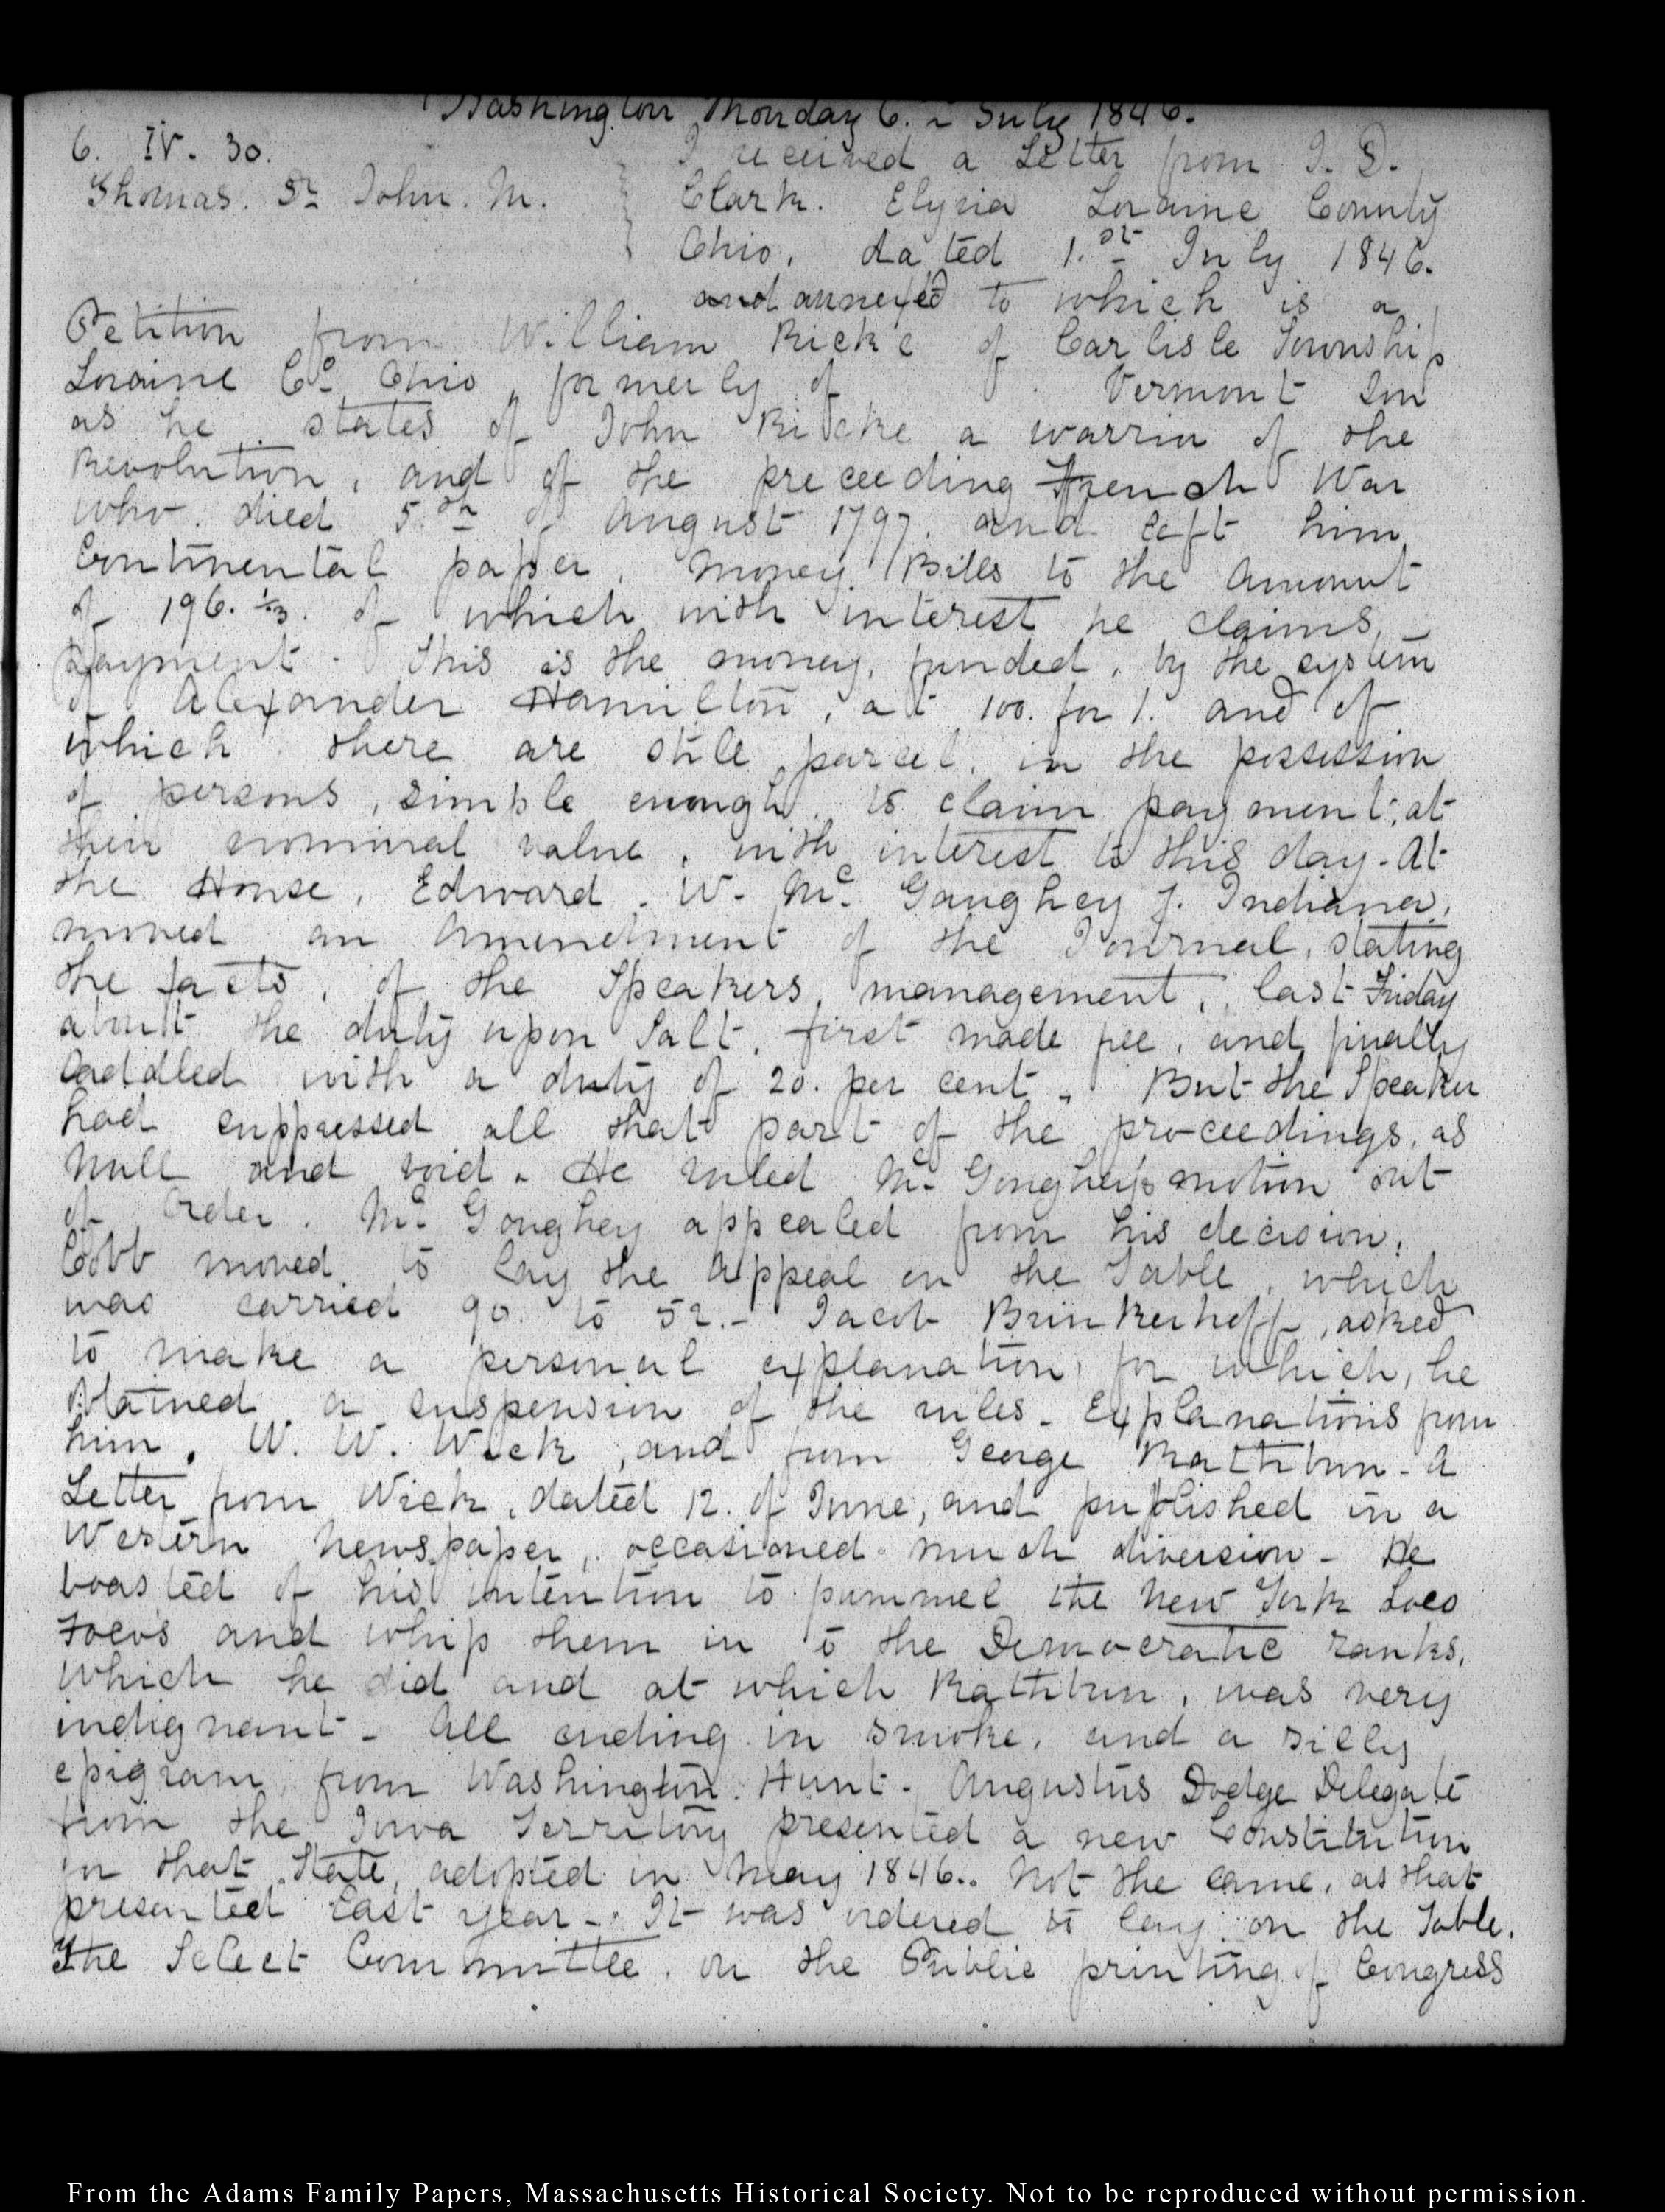 Washington Monday 6. July 1846.
6. IV. 30.
Thomas. Sr John. M.
I received a Letter from I. D.
Clark. Elyria Loraine County
Ohio, dated 1.st July 1846.
and annexed to which is a
Petition from William Ricke of Carlisle Township
Loraine Co. Ohio, formerly of Vermont Son
as he states of John Ricke a warrior of the
Revolution, and of the preceeding French War
who died 5.th of August 1797. and left him
Continental paper, Money Bills to the amount
of 196. 1/3. of which with interest he claims
payment. This is the money, funded, by the system
of Alexander Hamilton, at 100. for 1. and of
which there are still parcel, in the possession
of persons, simple enough, to claim payment, at
their nominal value, with interest to this day. At
the House, Edward. W. Mc. Gaughey of Indiana,
moved an amendment of the Journal, stating
the facts, of the Speakers, management, last Friday
about the duty upon Salt, first made free, and finally
saddled with a duty of 20. per cent. But the Speaker
had suppressed all that part of the proceedings, as
null and void. He ruled Mc Goughey's motion out
of Order. Mc Goughey appealed from his decision.
Cobb moved, to lay the Appeal on the Table, which
was carried 90. to 52.- Jacob Brinkerhoff, asked
to make a personal explanation, for which, he
obtained a suspension of the rules. Explanations from
him, W. W. Wick, and from George Rathbun - A
Letter from Wick, dated 12. of June, and published in a
Western Newspaper, occasioned much diversion - He
boasted of his intention to pummel the New York Loco
Foco's and whip them in to the Democratic ranks,
which he did and at which Rathbun, was very
indignant - All ending in smoke, and a silly
epigram, from Washington Hunt. Augustus Dodge Delegate
from the Iowa Territory presented a new Constitution
for that State, adopted in May 1846.. Not the same, as that
presented last year. It was ordered to lay on the Table.
The Select Committee, on the Public printing of Congress
From the Adams Family Papers, Massachusetts Historical Society. Not to be reproduced without permission.